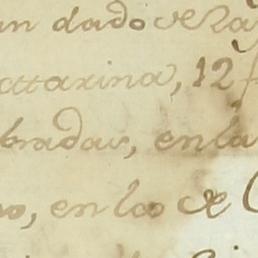 un dado de la
attarina, 12
bradas, en la
o, en los de